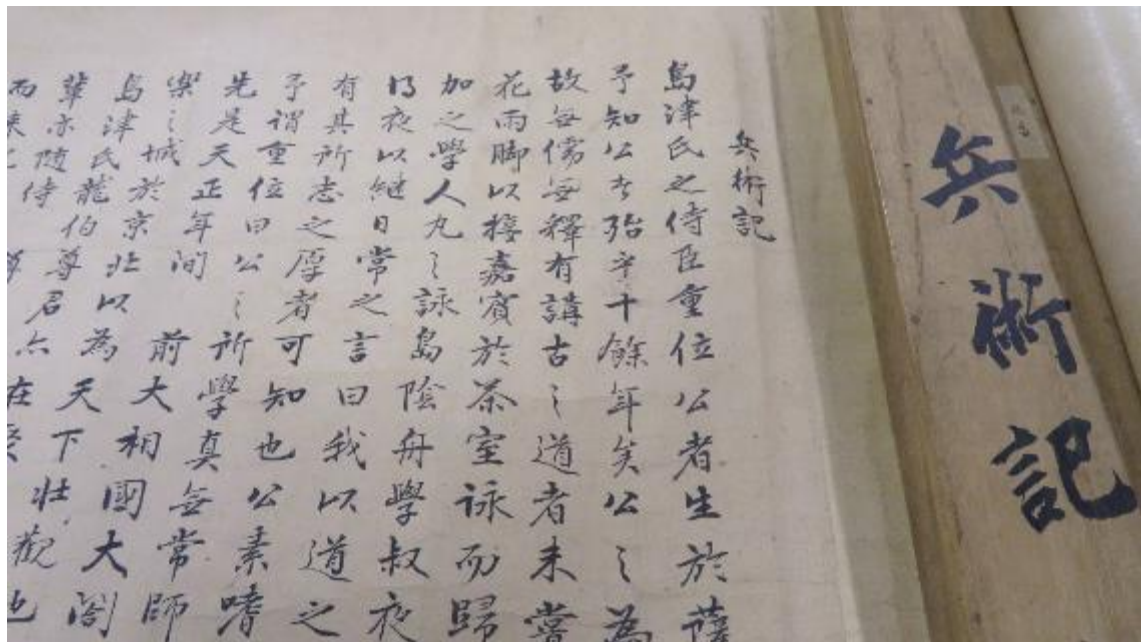 兵術記
兵術記
島津氏之侍臣重位公者生於薩
予知公者殆乎十餘年矣公〻為
故毎儒毎釋有講古〻道者未嘗
花雨脚以接嘉賓於茶室詠而歸
加之學人丸〻詠島陰舟學叔夜
夜以継日常之言曰我以道之
有其所志之厚者可知也公素嗜
予謂重位曰公〻所學真無常師
先是天正年間前大相國大閤
樂〻城於京北以為天下壯觀也
島津氏龍伯尊君亦在
輩亦随侍
而来